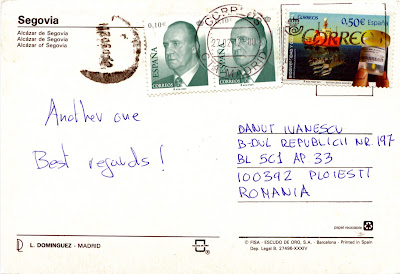 Segovia
Alcázar de Segovia
Alcázar de Segovia
Alcazar of Segovia
0,10€
ESPAÑA
CORREOS
CORREOS
MADRID
0,50€ España
CORREOS
Another one
Best regards!
DANUT IVANESCU
B-DUL REPUBLICII NR. 197
BL 5C1 AP 33
100392 PLOIESTI
ROMANIA
papel reciclable
L. DOMINGUEZ - MADRID
© FISA - ESCUDO DE ORO, S.A. - Barcelona - Printed in Spain
Dep. Legal B. 27496-XXXIV